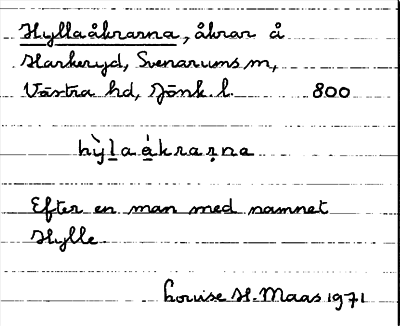 Hyllaåkrarna, åkrar å
Harkeryd, Svenarums sn,
Västra hd, Jönk. l. 800
hỳl̲a á̲kraṛna
Efter en man med namnet
Hylle.
Louise H. Maas 1971